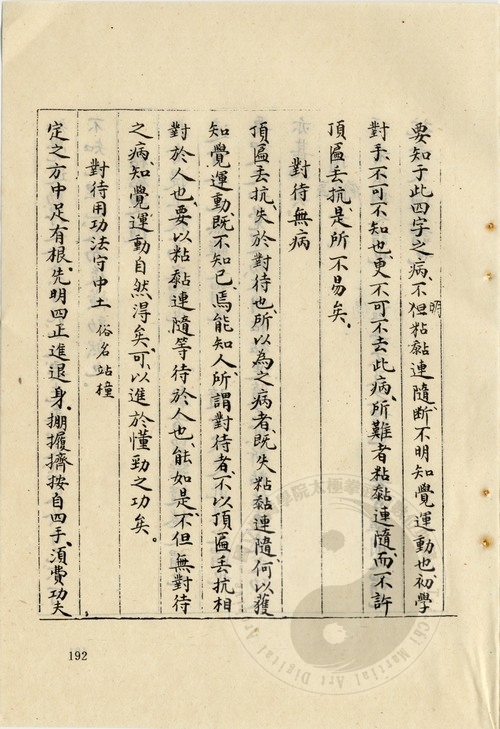 要知于此四字之病、不明但粘黏連隨、斷不明知覺運動也、初學
對手、不可不知也、更不可不去此病、所難者粘黏連隨、而不許
頂匾丟抗、是所不易矣。
對待無病
頂匾丟抗、失於對待也、所以為之病者、既失粘黏連隨、何以獲
知覺運動、既不知己、焉能知人、所謂對待者、不以頂匾丟抗相
對於人也、要以粘黏連隨等待於人也、能如是、不但無對待
之病、知覺運動自然得矣、可以進於懂勁之功矣。
對待用功法守中土 俗名站橦
定之方中足有根、先明四正進退身、掤履擠按自四手、須費功夫
192
學院太極拳
Chi Martial Art Digital Ar